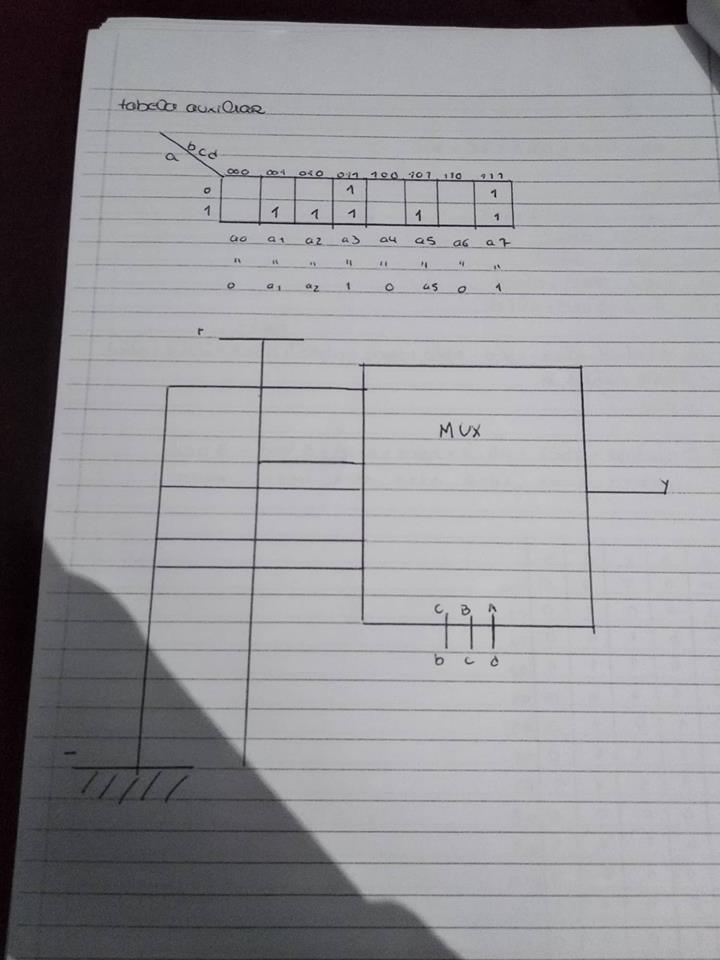 tabela auxiliar
a bcd
000 001 010 011 100 101 110 111
0 1 1
1 1 1 1 1 1
a0 a1 a2 a3 a4 a5 a6 a7
" " " " " " " "
0 a1 a2 1 0 a5 0 1
+
MUX
y
C B A
b c d
-